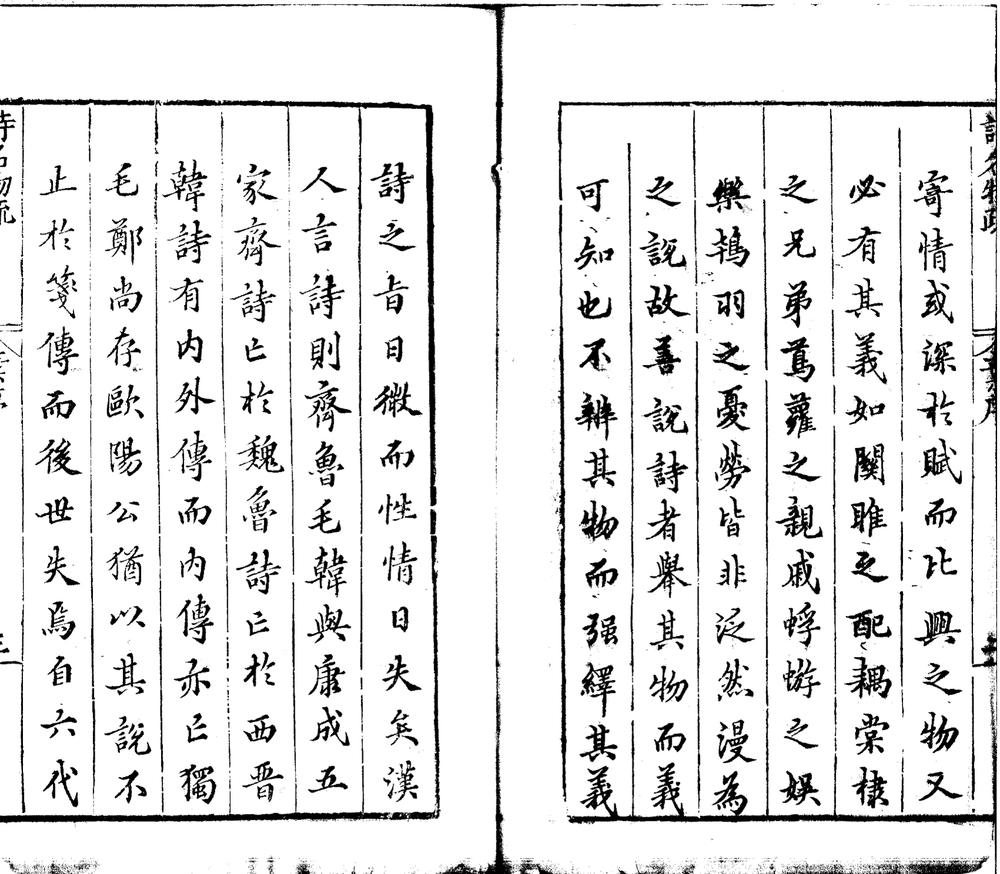 寄情或深於賦而比興之物又
必有其義如關雎之配耦棠棣
之兄弟蔦蘿之親戚蜉蝣之娛
樂鴇羽之憂勞皆非泛然漫為
之說故善說詩者舉其物而義
可知也不辨其物而强繹其義
詩之旨日微而性情日失矣漢
人言詩則齊魯毛韓與康成五
家齊詩亡於魏魯詩亡於西晋
韓詩有内外傳而内傳亦亡獨
毛鄭尚存歐陽公猶以其説不
止於箋傳而後世失焉自六代